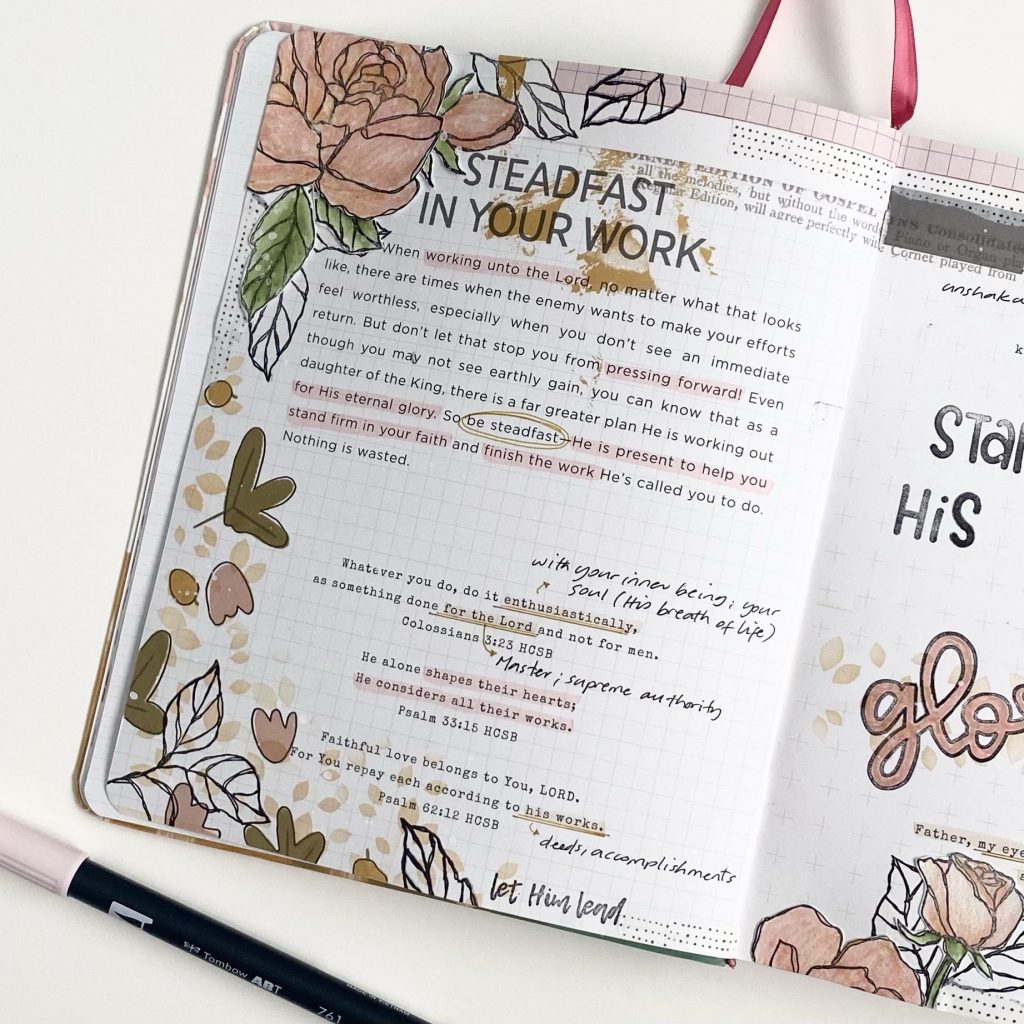 STEADFAST
IN YOUR WORK
ORNET EDITION OF GOSPEL
all the melodies, but without the word
Edition, will agree perfectly with
When working unto the Lord, no matter what that looks
like, there are times when the enemy wants to make your efforts
feel worthless, especially when you don't see an immediate
return. But don't let that stop you from pressing forward! Even
though you may not see earthly gain, you can know that as a
daughter of the King, there is a far greater plan He is working out
for His eternal glory. So be steadfast—He is present to help you
stand firm in your faith and finish the work He's called you to do.
Nothing is wasted.
with your inner being; your
soul (His breath of life)
Whatever you do, do it enthusiastically,
as something done for the Lord and not for men.
Colossians 3:23 HCSB
Master; supreme authority
He alone shapes their hearts;
He considers all their works.
Psalm 33:15 HCSB
Faithful love belongs to You, LORD.
For You repay each according to his works.
Psalm 62:12 HCSB
deeds, accomplishments
let Him lead
NS Consolidate
Piano or Organ
Cornet played from
unshaka
k
Stan
HiS
glo
Father, my eye
Tombow ABT
761
MADE IN VIETNAM